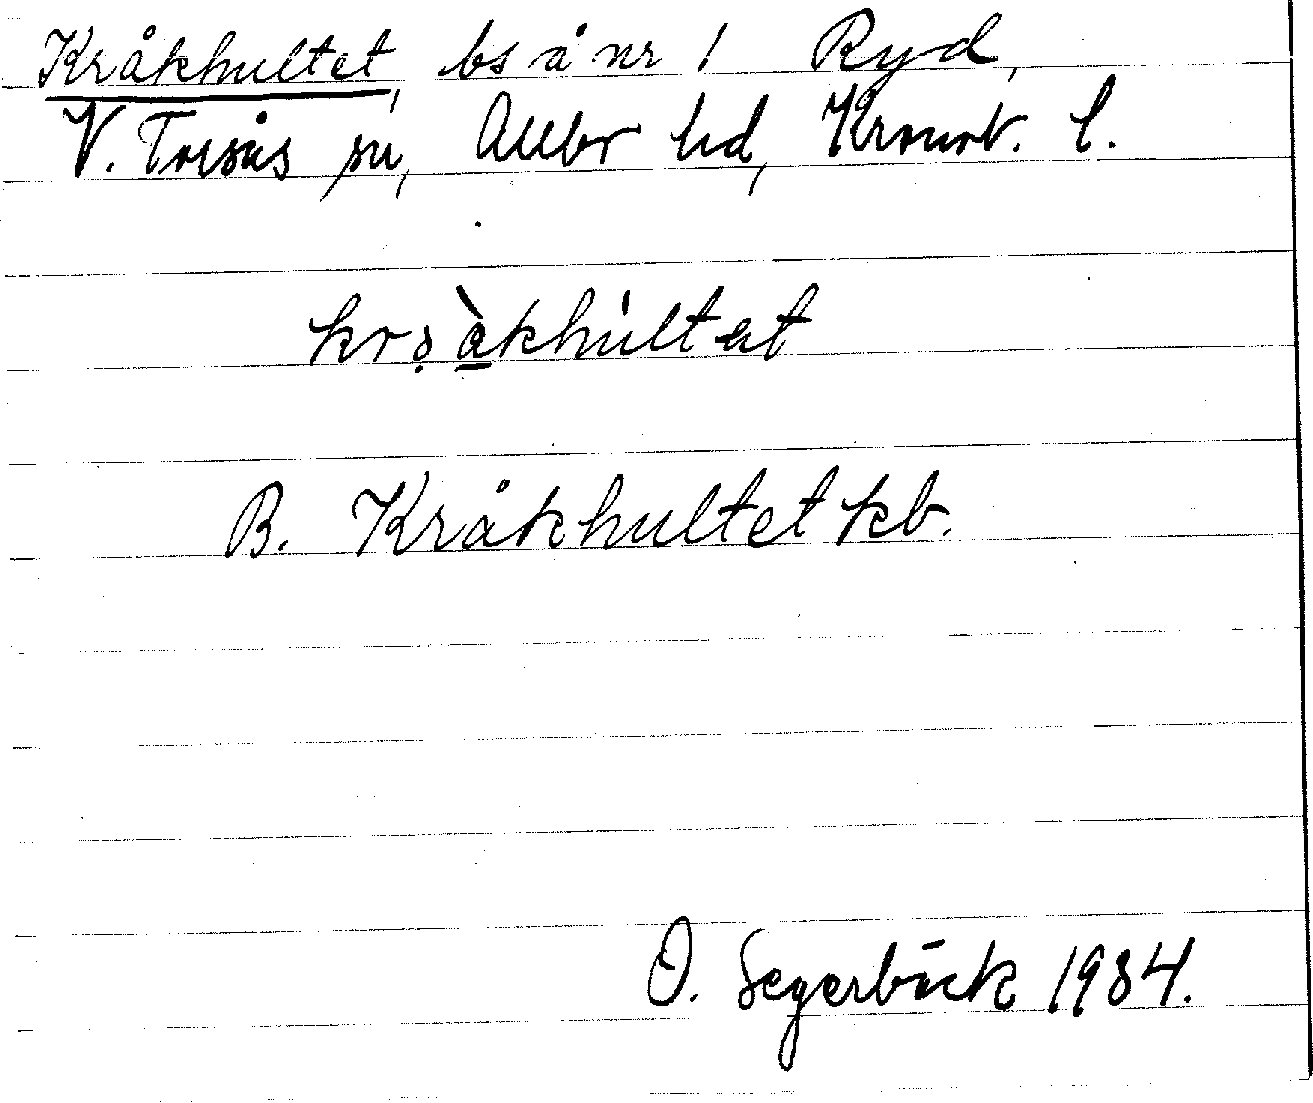 Kråkhultet, bs å nr 1 Ryd,
V. Torsås sn, Allbo hd, Kronob. l.
krọàkhu̍ltət
B. Kråkhultet kb.
O. Segerbäck 1934.